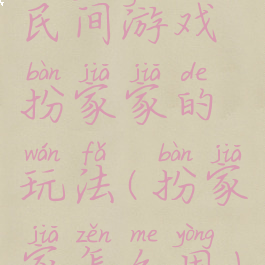 民间游戏
bàn jiā jiā de
扮家家的
wán fǎ bàn jiā
玩法(扮家
jiā zěn me yòng
家怎么用)